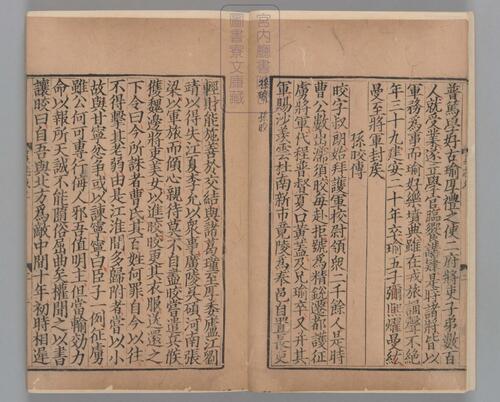 普篤學好古瑜厚禮之使二府將吏子弟數百
人就受業遂立學官臨饗講肄是時諸將皆以
軍務為事而瑜好樂墳典雖在戎旅誦聲不絕
年三十九建安二十年卒瑜五子彌熙燿曼紘
曼至將軍封矦
孫皎傳
皎字叔朗始拜護軍校尉領衆二千餘人是時
曹公數出濡須皎每赴拒號為精銳遷都護征
虜將軍代程普督夏口黃蓋及兄瑜卒又并其
軍賜沙羡雲杜南新市竟陵為奉邑自置長吏
宮内廳書
圖書寮文庫藏
輕財能施善於交結與諸葛瑾至厚委廬江劉
靖以得失江夏李允以衆事廣陵吳碩河南張
梁以軍旅而傾心親待莫不自盡皎嘗遣兵候
獲魏邊將吏美女以進皎皎更其衣服送還之
下令曰今所誅者曹氏其百姓何罪自今以往
不得擊其老弱由是江淮間多歸附者嘗以小
故與甘寧忿爭或以諫寧寧曰臣子一例征虜
雖公何可專行侮人邪吾值明主但當輸効力
命以報所天誠不能隨俗屈曲矣權聞之以書
讓皎曰自吾與北方為敵中間十年初時相違